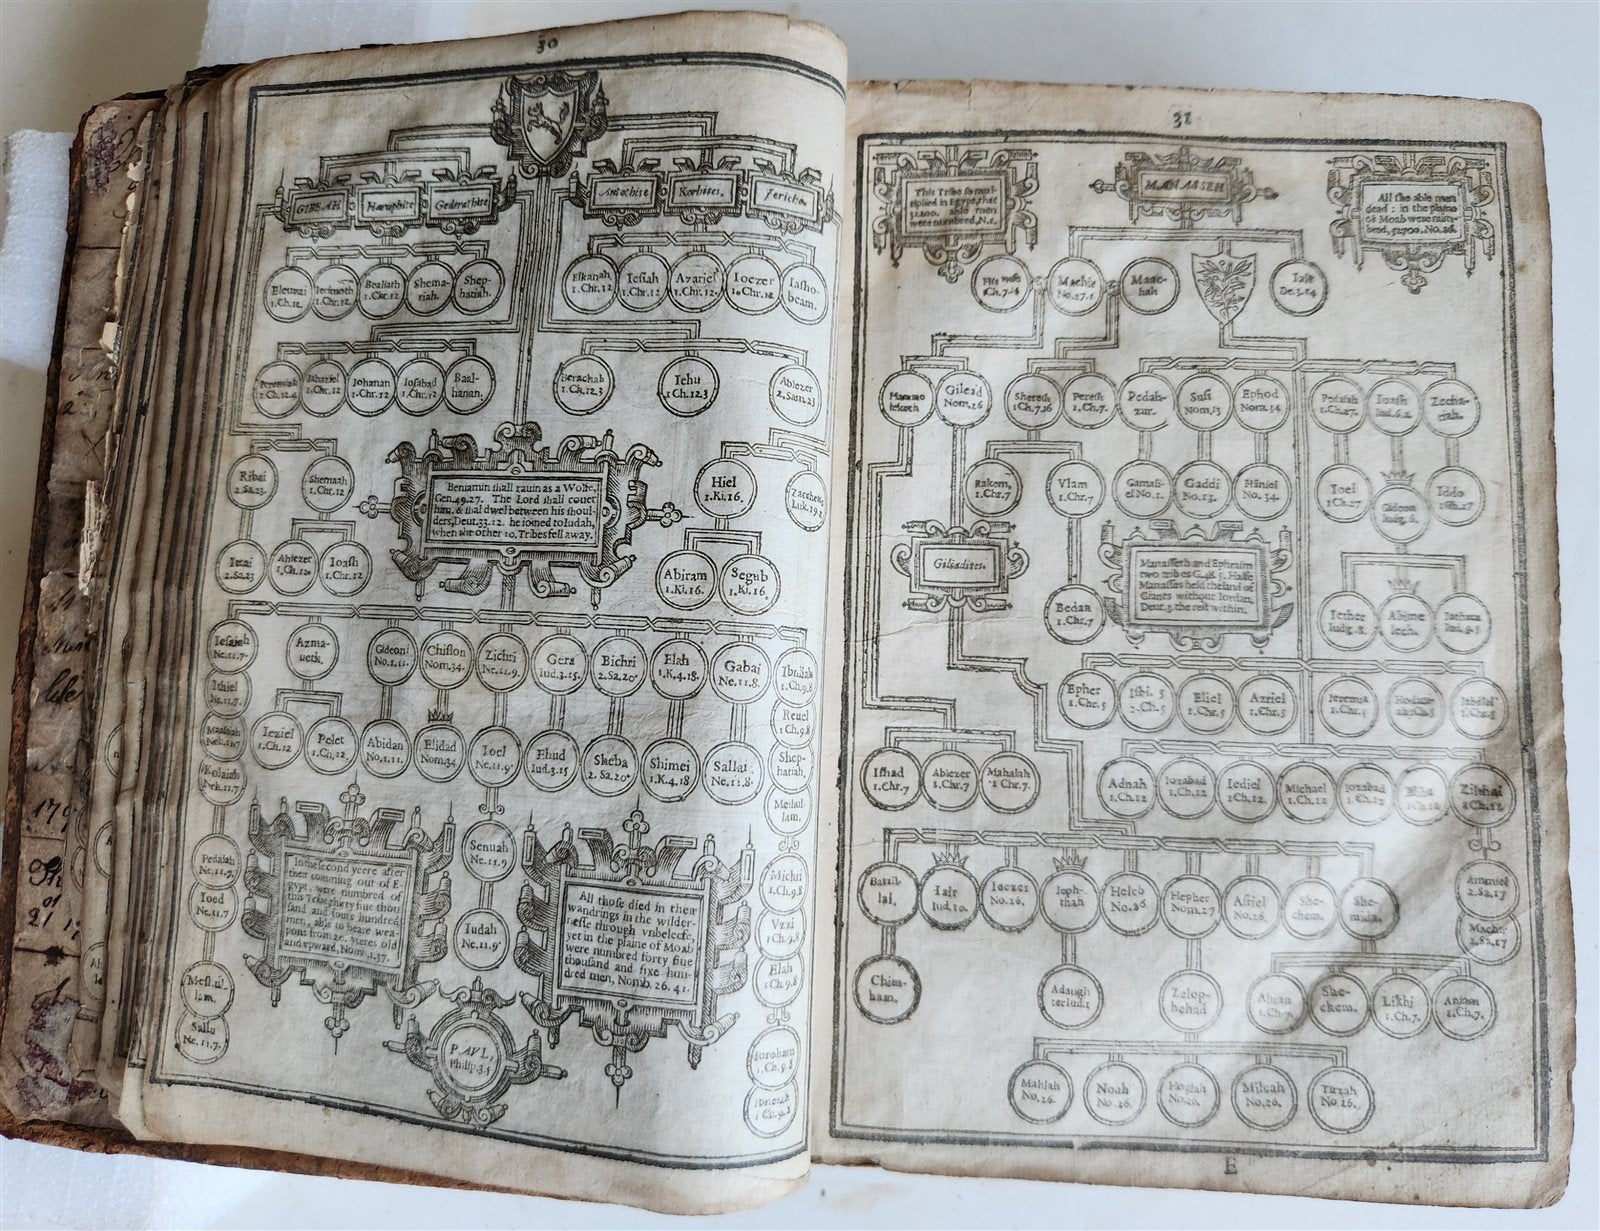 30
GIBEAH
Haruphite
Gederathite
Korhites.
Jericho.
1.Ch.12.
1.Chr.12.
Bealiath
1.Chr.12
Shema-
riah.
Shep-
hatiah.
Elkanah
1.Chr.12
Iesiah
1.Chr.12
Azariel
1.Chr.12.
Ioezer
1.Chr.12
Iasho-
beam.
Ieremiah
1.Ch.12.4
Iahaziel
1.Chr.12
Johanan
1.Chr.12
Iosabad
1.Chr.12
Baal-
hanan.
Berachah
1.Ch.12.3
Iehu
1.Ch.12.3
Abiezer
2.Sam.23
Ribai
2.Sa.23.
Shemaah
1.Chr.12
Beniamin shall rauin as a Wolfe.
Gen.49.27. The Lord shall couer
him, & shal dwel between his shoul-
ders, Deut.33.12. he ioined to Iudah,
when the other 10. Tribes fell away.
Hiel
1.Ki.16.
Zaccheus
Luk.19.2
Ittai
2.Sa.23
Ahiezer
1.Ch.12.
Ioash
1.Chr.12
Abiram
1.Ki.16.
Segub
1.Ki.16.
Iesaiah
Ne.11.7.
Azma-
ueth.
Gideoni
No.1.11.
Chislon
Nom.34.
Zichri
Ne.11.9.
Gera
Iud.3.15.
Bichri
2.Sa.20
Elah
1.K.4.18.
Gabai
Ne.11.8.
1.Ch.9.8
Ithiel
Ne.11.7.
Reuel
1.Ch.9.8
Ieziel
1.Ch.12
Pelet
1.Ch.12.
Abidan
No.1.11.
Elidad
Nom.34
Ioel
Ne.11.9
Ehud
Iud.3.15
Sheba
2.Sa.20
Shimei
1.K.4.18
Sallai
Ne.11.8.
Shep-
hatiah.
Kolaiah
Neh.11.7
Meshul-
lam.
In the second yeere after
their comming out of E-
gypt, were numbred of
this Tribe thirty fiue thou
sand and foure hundred
men, able to beare wea-
pons from 20. yeeres old
and vpward, Nom.1.37.
Senuah
Ne.11.9
All those died in their
wandrings in the wilder-
nesse through vnbeleefe,
yet in the plaine of Moab
were numbred forty fiue
thousand and sixe hun-
dred men, Nomb. 26. 41.
Pedaiah
Ne.11.7.
Michri
1.Ch.9.8
Ioed
Ne.11.7
Iudah
Ne.11.9
Vzzi
1.Ch.9.8
Elah
1.Ch.9.8
Meshul-
lam.
Sallu
Ne.11.7.
PAVL,
Philip.3.5
Ioroham
1.Ch.9.8
1.Ch.9.8
31
This Tribe so mul-
tiplied in Egypt, that
32200. able men
were numbred, No.1.
MANASSEH
All the able men
dead: in the plaine
of Moab were num-
bred, 52700. No.26.
His wife
1.Ch.7.14
Machir
No.27.1
Maac-
hah
Iair
De.3.14
Gilead
Nom.26
Sheresh
1.Ch.7.16
Peresh
1.Ch.7.
Pedah-
zur.
Susi
Nom.13
Ephod
Nom.34
Pedaiah
1.Ch.27.
Ioash
Iud.6.1
Zecha-
riah.
Rakem,
1.Chr.7
Vlam
1.Chr.7
Gamali-
el No.1.
Gaddi
No.13.
Haniel
No. 34.
Ioel
1.Ch.27
Gideon
Iudg.6.
Iddo
1.Ch.27
Giliadites.
Manasseth and Ephraim
two tribes G.48.5. Halfe
Manasses held the land of
Giants without Iordan.
Deut.3. the rest within.
Bedan
1.Ch.7
Iether
Iudg.8.
Abime
lech.
Epher
1.Chr.5
Ishi. 5
1.Ch.5
Eliel
1.Chr.5
Azriel
1.Chr.5
Ieremia
1.Chr.5
1.Ch.5
Ishad
1.Chr.7
Abiezer
1.Chr.7
Mahalah
1 Chr.7.
Adnah
1.Ch.12
Iozabad
1.Ch.12
Iediel
1.Ch.12.
Michael
1.Ch.12
Iozabad
1.Ch.12
Elihu
1.Ch.12
Zilthai
1.Ch.12
Barzil-
lai.
Iair
Iud.10.
Ieezer
No.26.
Ieph-
thah
Heleb
No.26
Hepher
Nom.27
Asriel
No.26.
She-
chem.
She-
mida.
Ammiel
2.Sa.17
Machir
2.Sa.17
Chim-
ham.
Adaugh
ter Iud.1
Zelop-
hehad
Ahian
1.Ch.7.
She-
chem.
Likhi
1.Ch.7.
Aniam
1.Ch.7.
Mahlah
No.26.
Noah
No.26.
Hoglah
No.26.
Milcah
No.26.
Tirzah
No.26.
E